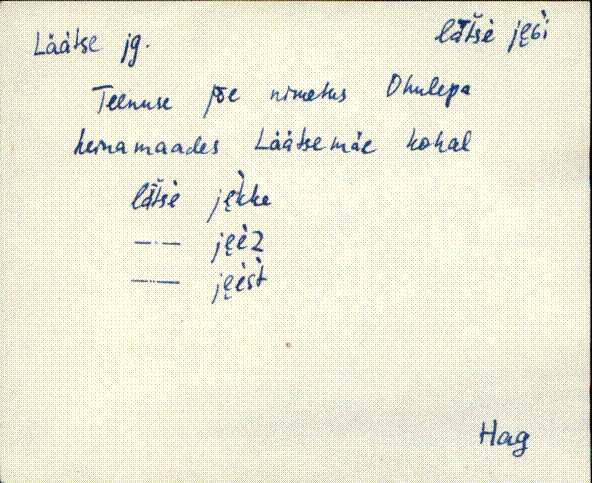 Läätse jg. lä̆tsè ję̀βi
Teenuse jõe nimetus Ohulepa
heinamaades Läätsemäe kohal
lä̆tsè ję̀kke
—·— ję̀èz
—— ję̀èst
Hag